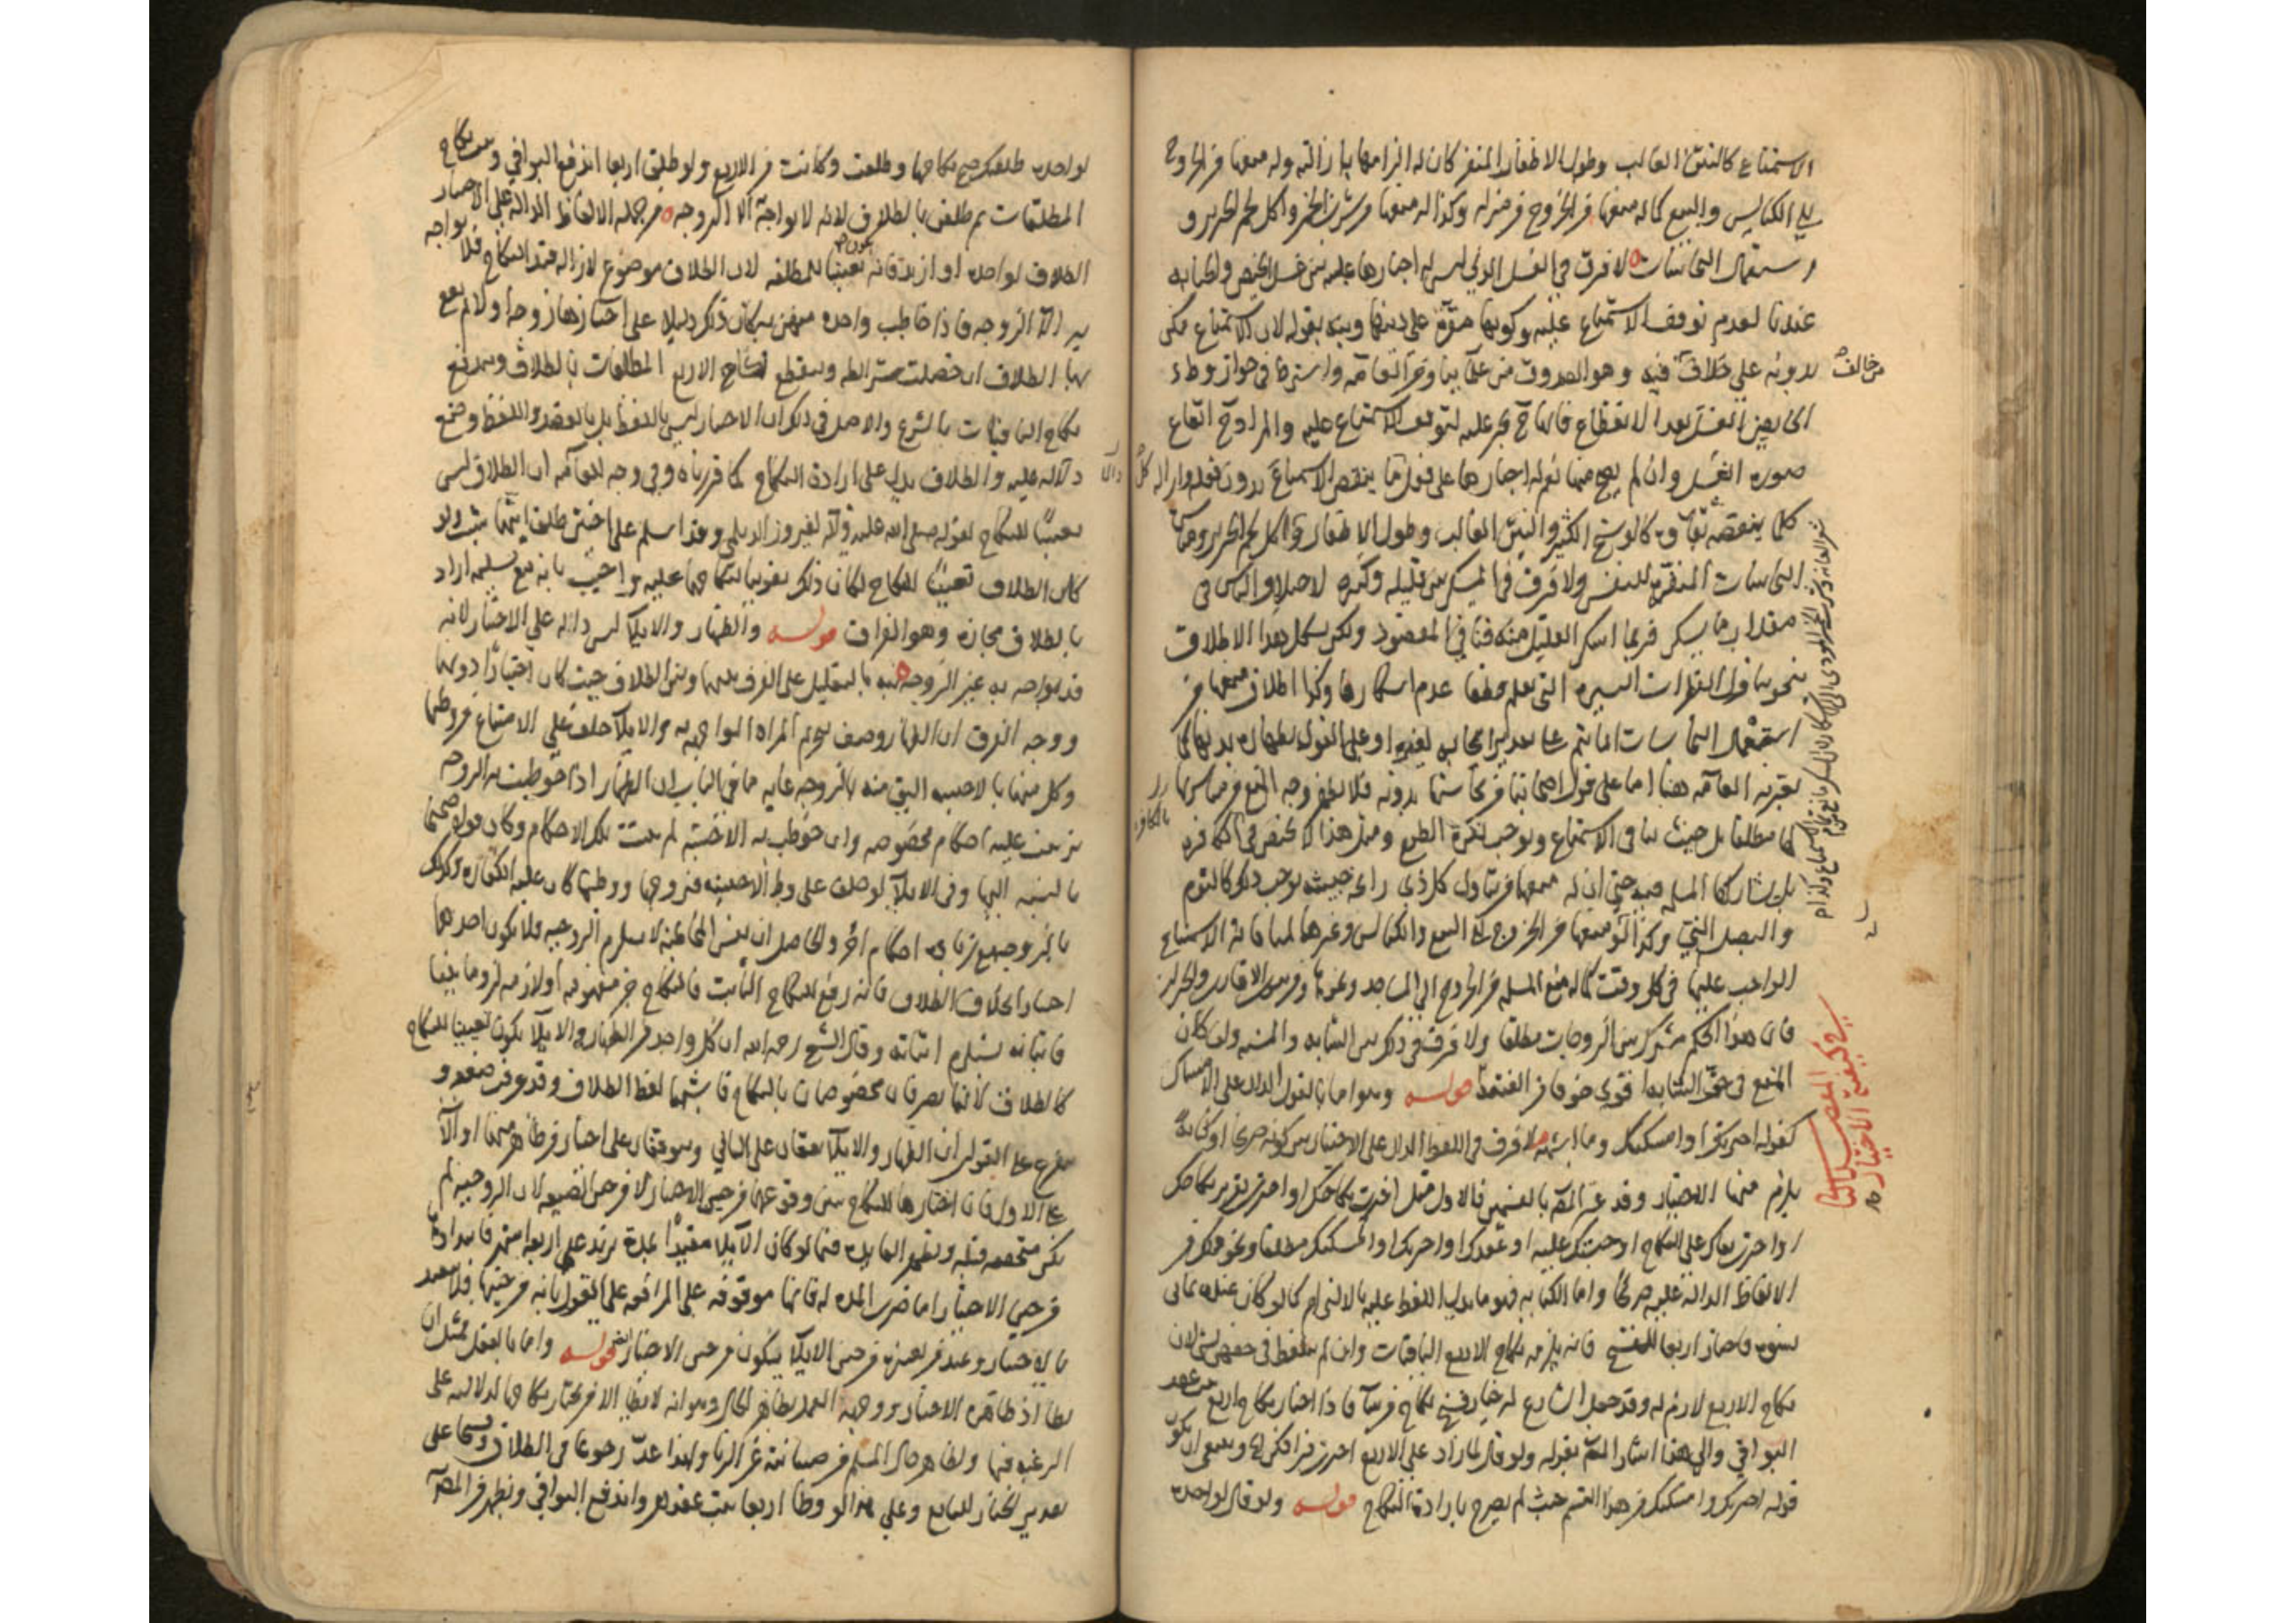 الاستمتاع كالنتن الغالب وطول الاظفار المنفر كان له الزامها بازالته وله منعها من الخروج
الى الكنايس والبيع كما له منعها من الخروج من منزله وكذا له منعها من شرب الخمر واكل لحم الخنزير و
استعمال النجاسات لا فرق في الغسل الذي ليس له اجبارها عليه بين غسل الحيض والجنابه
عندنا لعدم توقف الاستمتاع عليه وكونها مقرة على دينها وبينه بقوله لان الاستمتاع ممكن
بدونه على خلاف فيه وهو الصدوق من علمائنا ومن العامه واشترط في جواز وطء
من خالف
الحايض الغسل بعد الانقطاع فالزوج يجبر عليه لتوقف الاستمتاع عليه والمراد ايقاع
صورة الغسل وان لم يصح منها نعم له اجبارها على فعل ما ينقص الاستمتاع بدون فعله وازاله كل
كلما ينقصه بقاوه كالوسخ الكثير والنتن الغالب وطول الاظفار واكل لحم الخنزير ومماسة
النجاسات المنفرة للنفس ولا فرق في المسكر بين قليله وكثيره لاختلاف الناس في
مقدار ما يسكر فربما اسكر القليل منه فنافى المقصود ولكن يشكل بعد الاطلاق
بنحو تناول القطرات اليسيره التي يعلم قطعا عدم اسكارها وكذا اطلاق منعها من
استعمال النجاسات انما يتم على تقدير ايجابه لغيره او على القول بطهارة بدنها كما
يعتبره العامه هنا اما على قول اصحابنا من نجاستها بدونه فلا يظهر وجه المنع من مباشرتها
لها مطلقا بل حيث ينافي الاستمتاع ويوجب نفرة الطبع ومثل هذا لا يختص في الكافره
بل تشاركها المسلمه فيه حتى ان له منعها من تناول كل ذي رائحه خبيثه يوجب ذلك كالثوم
والبصل الني وكذا له منعها من الخروج الى البيع والكنايس وغيرها لمنافاته الاستمتاع
الواجب عليها في كل وقت كما له منع المسلمه من الخروج الى المساجد وغيرها من بيوت الاقارب والجيران
فان هذا الحكم مشترك بين الزوجات مطلقا ولا فرق في ذلك بين الشابه والمسنه وان كان
المنع في حق الشابه اقوى خوفا من الفتنه قوله وهو اما بالقول الدال على الامساك
المقصد الثاني
في كيفية الاختيار
كقوله اخترتك او امسكتك وما اشبهه لا فرق في اللفظ الدال على الاختيار بين كونه صريحا او كنايه
يلزم منها الاختيار وقد عبر المصنف بالقسمين فالاول مثل اخترت نكاحك او اخترت تقرير نكاحك
او اخترتك على النكاح او حبستك عليه او عقدك او اخترتك او امسكتك مطلقا ونحو ذلك من
الالفاظ الداله عليه صريحا واما الكنايه فهو ما يدل اللفظ عليه بالالتزام كما لو كان عنده ثماني
نسوه فاختار اربعا للفسخ فانه يلزمه نكاح الاربع الباقيات وان لم يتلفظ في حقهن بشي لان
نكاح الاربع لازم له وقد جعل الشارع له خيار فسخ نكاح من شآ فاذا اختار نكاح اربع من عقد
البواقي والى هذا اشار المصنف بقوله ولو قال لما زاد على الاربع اخترت فراقكن وينبغي ان يكون
قوله اخترتك وامسكتك من هذا القسم حيث لم يصرح بارادة النكاح قوله ولو قال لواحده
لواحده طلقتك صح نكاحها وطلقت وكانت من الاربع ولو طلق اربعا اندفع البواقي وثبت نكاح
المطلقات ثم طلقن بالطلاق لانه لا يواجه به الا الزوجه من جمله الالفاظ الداله على الاختيار
الطلاق لواحده او ازيد فانه يكون تعيينا للمطلقه لان الطلاق موضوع لازاله قيد النكاح فلا يواجه
به الا الزوجه فاذا خاطب واحده منهن به كان ذلك دليلا على اختيارها زوجه اولا ثم يقع
بها الطلاق ان حصلت شرائطه وينقطع نكاح الاربع المطلقات بالطلاق ويندفع
نكاح الباقيات بالشرع والاصل في ذلك ان الاختيار ليس باللفظ بل بالقصد واللفظ وضع
دالا عليه والطلاق يدل على ارادة النكاح كما قررناه وفي وجه للعامه ان الطلاق ليس
تعيينا للنكاح لقوله صلى الله عليه وآله لفيروز الديلمي وقد اسلم على اختين طلق ايتهما شئت ولو
كان الطلاق تعيينا للنكاح لكان ذلك تفويتا لنكاحهما عليه واجيب بانه مع تسليمه اراد
بالطلاق مجازه وهو الفراق قوله والظهار والايلا ليس دلاله على الاختيار لانه
قد يواجه به غير الزوجه نبه بالتعليل على الفرق بينهما وبين الطلاق حيث كان اختيارا دونهما
ووجه الفرق ان الظهار وصف بتحريم المراه المواجهه به والايلا حلف على الامتناع من وطئها
وكل منهما بالاجنبيه اليق منه بالزوجه غايه ما في الباب ان الظهار اذا خوطبت به الزوجه
ترتبت عليه احكام مخصوصه وان خوطب به الاجنبيه لم يثبت تلك الاحكام وكان قوله صحيحا
بالنسبه اليها وفي الايلا لو حلف على وطء الاجنبيه فتزوجها ووطئها كان عليه الكفاره وكذلك
بالزوجيه مع زيادة احكام اخر والحاصل ان نفس المخاطبه لا يستلزم الزوجيه فلا يكون احدهما
اختيارا بخلاف الطلاق فانه رفع للنكاح الثابت فالنكاح جزء مفهومه او لازمه لزوما بينا
فاثباته يستلزم اثباته وقال الشيخ رحمه الله ان كل واحد من الظهار والايلا يكون تعيينا للنكاح
كالطلاق لانهما تصرفان مخصوصان بالنكاح فاشبها لفظ الطلاق وقد عرفت ضعفه و
يتفرع على القولين ان الظهار والايلا يقعان على الثاني ويتوقفان على اختيار من ظاهر منها او آلى
على الاول فان اختارها للنكاح تبين وقوعهما من حين الاختيار لا من حين الصيغه لان الزوجيه لم
تكن متحققه قبله وتظهر الفايده فيما لو كان الايلا مقيدا بمدة تزيد على اربعه اشهر فابتداؤها
من حين الاختيار اما ضرب المده له فانها موقوفه على المرافعه على القول بانه من حينها فلا يتقيد
بالاختيار وعند من يعتبره من حين الايلا يكون من حين الاختيار قوله واما بالفعل فمثل ان
يطأ اذ ظاهره الاختيار ووجه العمل بظاهر الحال وهو انه لا يطأ الا من يختار نكاحها لدلالته على
الرغبه فيها وظاهر حال المسلم من صيانته عن الزنا ولهذا عد رجوعا في الطلاق وفسخا على
تقدير الخيار للبايع وعلى هذا لو وطأ اربعا ثبت عقدهن واندفع البواقي ويظهر من المصنف